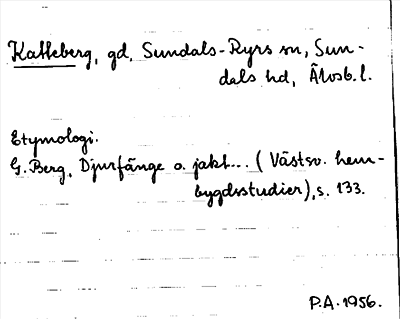 Katteberg, gd, Sundals-Ryrs sn, Sun-
dals hd, Älvsb. l.
Etymologi.
G. Berg, Djurfänge o. jakt... (Västsv. hem-
bygdsstudier), s. 133.
P.A. 1956.